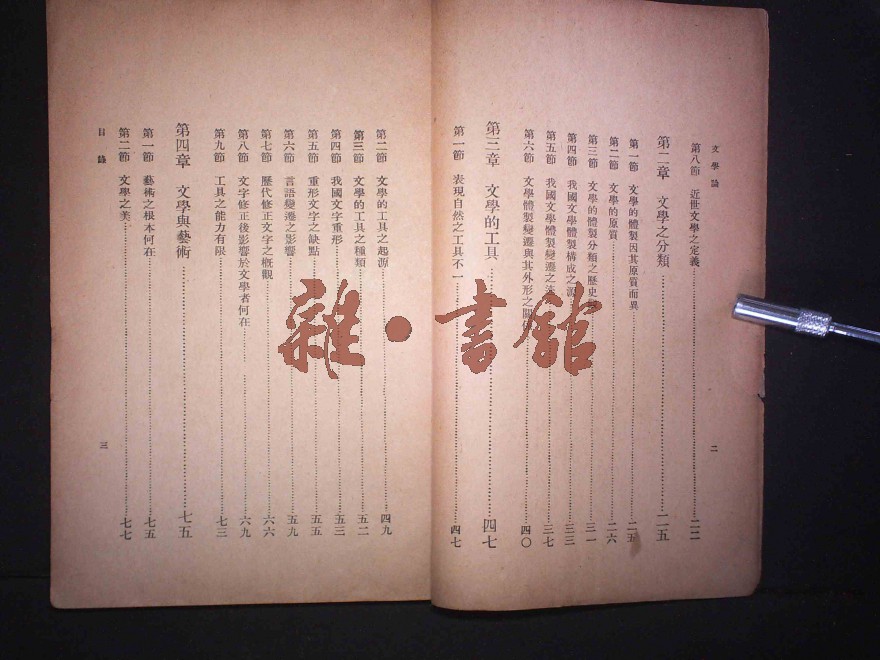 文學論
第八節 近世文學之定義………二二
第二章 文學之分類………二五
第一節 文學的體製因其原質而異………二五
第二節 文學的原質………二六
第三節 文學的體製分類之歷史………三一
第四節 我國文學體製構成之源………三三
第五節 我國文學體製變遷之………三七
第六節 文學體製變遷與其外形之關………四〇
第三章 文學的工具………四七
第一節 表現自然之工具不一………四七
二
第二節 文學的工具之起源………四九
第三節 文學的工具之種類………五二
第四節 我國文字重形………五三
第五節 重形文字之缺點………五五
第六節 言語變遷之影響………五九
第七節 歷代修正文字之概觀………六六
第八節 文字修正後影響於文學者何在………六九
第九節 工具之能力有限………七三
第四章 文學與藝術………七五
第一節 藝術之根本何在………七五
第二節 文學之美………七七
目錄
三
雜·書館